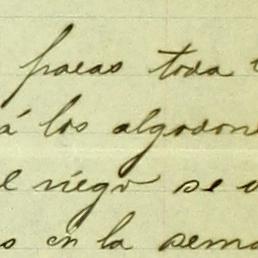 pacas toda
á los algodone
el riego se
s en la sema